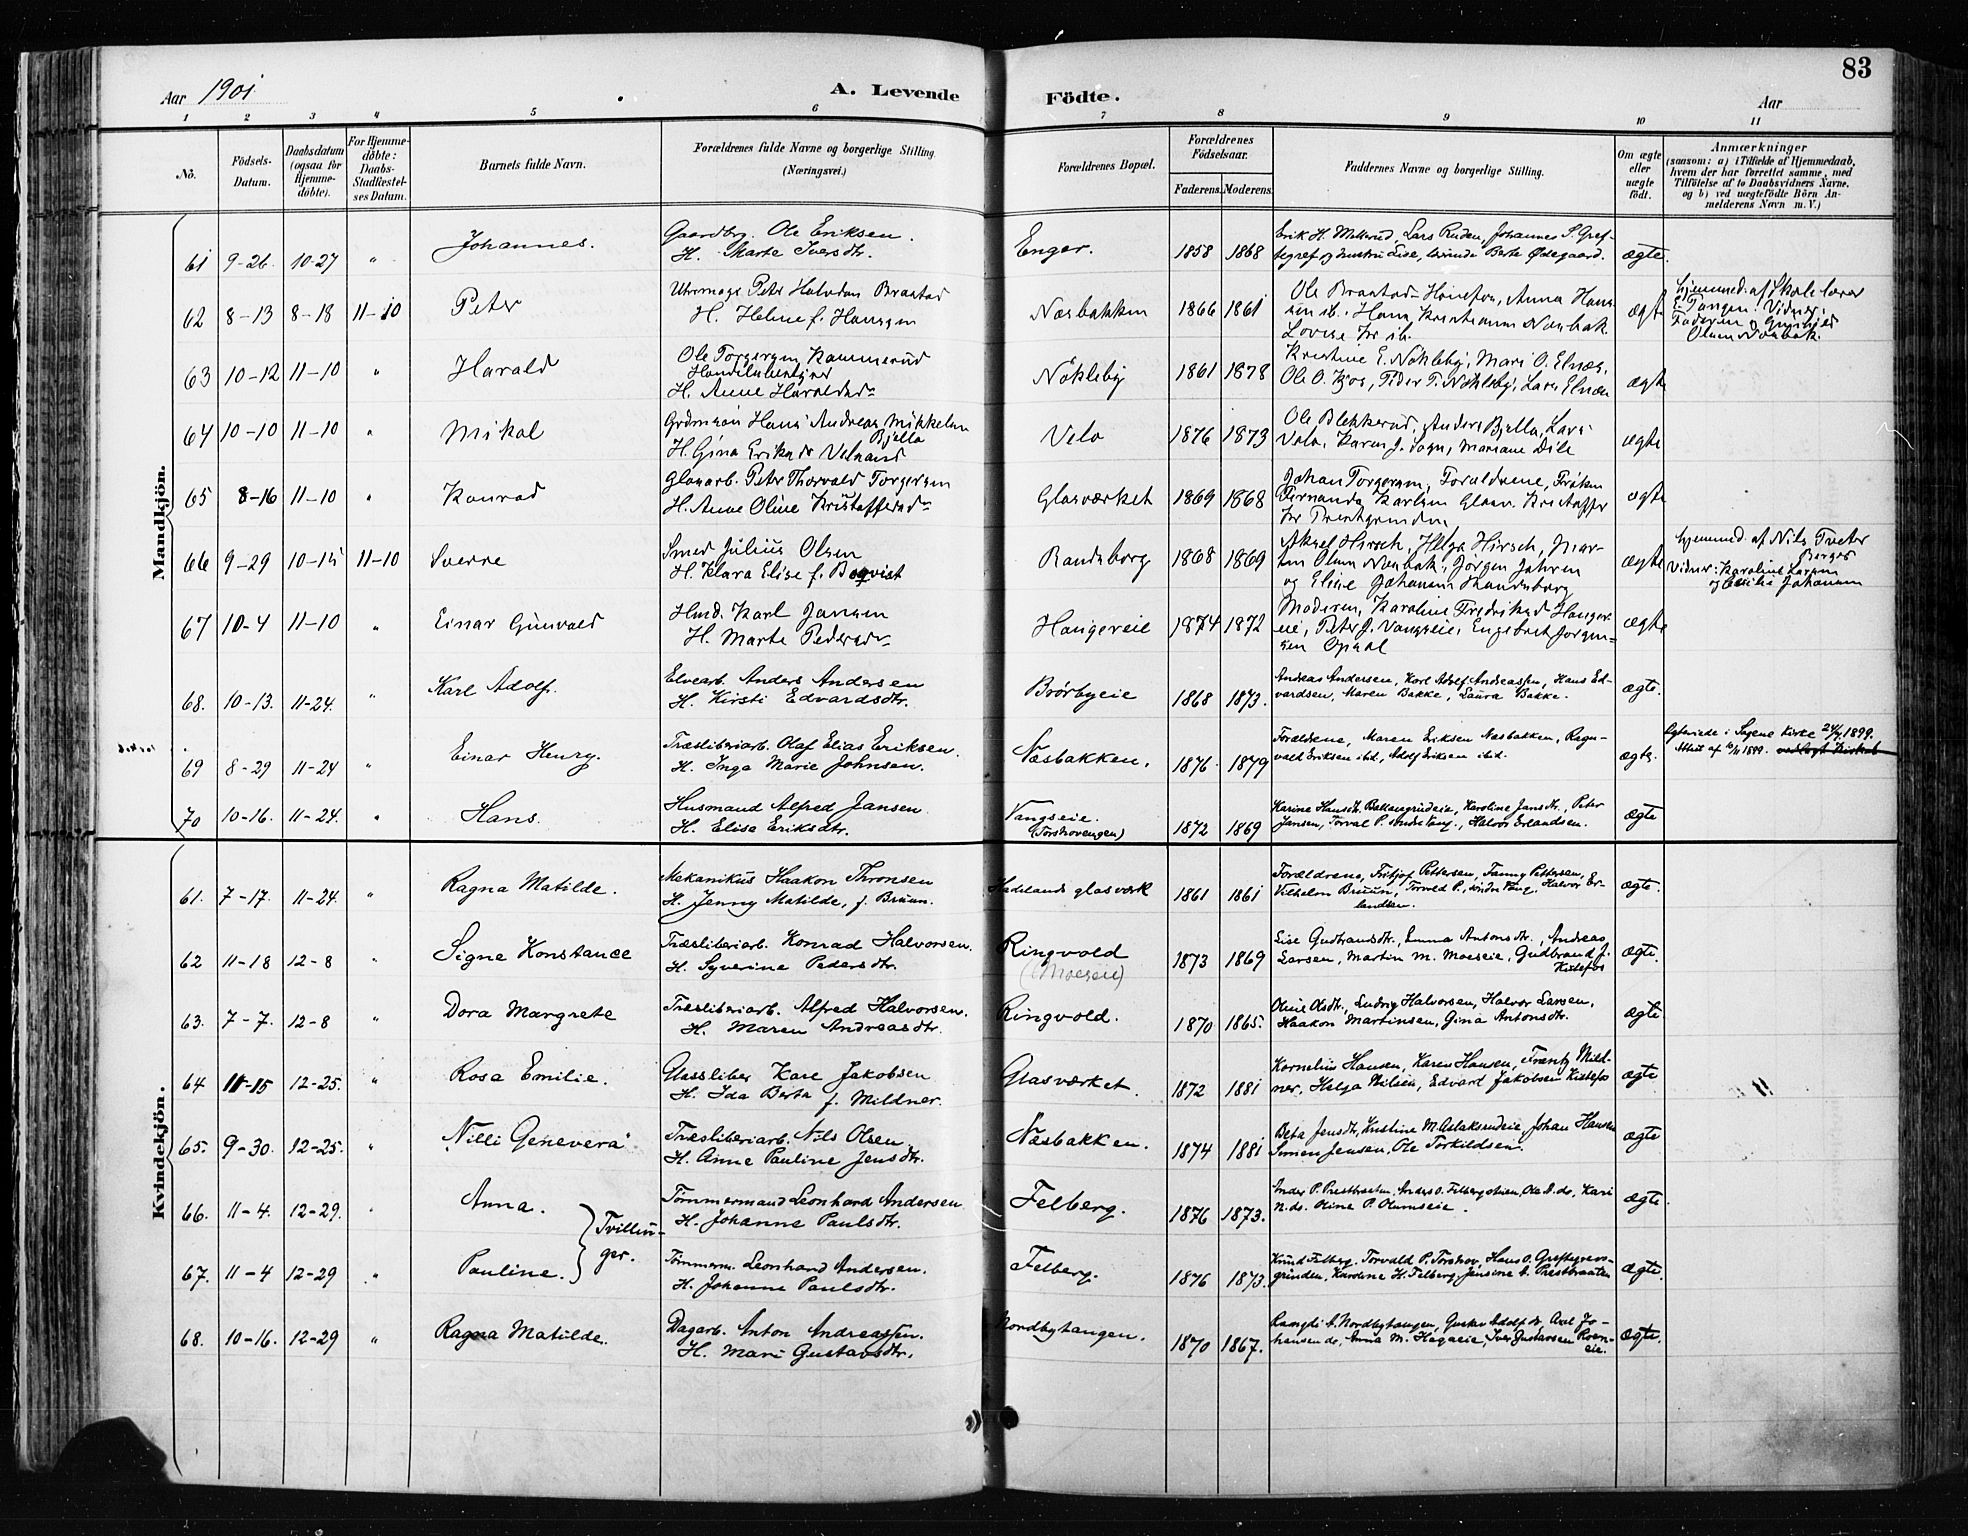 83
Aar 1901
A. Levende
Födte.
Aar
1 2 3 4 5 6 7 8 9 10 11
No.
Födsels-
Datum.
Daabsdatum
(ogsaa for
Hjemme-
döbte).
For Hjemme-
döbte:
Daabs-
Stadfæstel-
ses Datum.
Barnets fulde Navn.
Forældrenes fulde Navne og borgerlige Stilling.
(Næringsvei.)
Forældrenes Bopæl.
Forældrenes
Födselsaar.
Faderens. Moderens.
Faddernes Navne og borgerlige Stilling.
Om ægte
eller
uægte
födt.
Anmærkninger
(saasom: a) i Tilfælde af Hjemmedaab,
hvem der har forrettet samme, med
Tilföielse af to Daabsvidners Navne,
og b) ved uægtefödte Börn An-
melderens Navn m. V.)
Mandkjön.
61 9-26 10-27 " Johannes.
Gaardbr. Ole Eriksen.
H. Marte Iversdtr.
Enger. 1858 1868
Erik H. Mellerud, Lars Ruden, Johannes S. Gref-
ægte.
62 8-13 8-18 11-10 Peter
Uhrmager Peter Halvdan Braatad
H. Helene f. Hansen
Næsbakken 1866 1861
Ole Braatad Hönefos, Anna Han-
sen ib., Hans Kristiansen Næsbak.
ægte
Hjemmed. af Skolelærer
Tangen. Vidner:
Faderen og
Olsen Næsbak.
63 10-12 11-10 " Harald
Ole Torgersen Kammerud
Handelsbestyrer
H. Anne Haraldsdr
Nökleby 1861 1878
Kristine E. Nökleby, Mari O. Elnæs,
Ole O. Kjos, Peder T. Nökleby, Lars Elnæs
ægte
64 10-10 11-10 " Mikal
Grdmson Hans Andreas Mikkelsen
Bjella
H. Gina Eriksdr Velsand
Velo 1876 1873
Ole Blekkerud, Anders Bjella, Lars
Velo, Karen J. Sogn, Mariane Dile
ægte
65 8-16 11-10 " Konrad
Glasarb. Peter Thorvald Torgersen
H. Anne Oline Kristoffersdr
Glasværket 1869 1868
Johan Torgersen, Forældrene, Fröken
Fernanda Karlsen Glasv. Kristoffer
ægte
66 9-29 10-15 11-10 Sverre
Smed Julius Olsen
H. Klara Elise f. Boqvist
Randsborg 1868 1869
Aksel Hirsch, Helga Hirsch, Mar-
tin Olsen Næsbak, Jörgen Johsen
og Eline Johansen Randsborg
ægte
Hjemmed. af Nils Tveter
Berger
Vidner: Karoline Larsen
og Johansen
67 10-4 11-10 " Einar Gunvald
Husm. Karl Jansen
H. Marte Pedersdr
Haugereie 1874 1872
Moderen, Karoline Fredriksd Hauger-
eie, Peter J. Vangseie, Engebret Jörgen-
sen Opsal
ægte
68. 10-13. 11-24. " Karl Adolf.
Elvearb. Anders Andersen
H. Kirsti Edvardsdtr.
Brörbyeie 1868 1873.
Andreas Andersen, Karl Adolf Andreassen, Hans Ed-
vardsen, Maren Bakke, Laura Bakke.
ægte.
69 8-29 11-24 " Einar Henry.
Træsliberiarb. Olaf Elias Eriksen.
H. Inga Marie Johnsen.
Næsbakken. 1876. 1879
Forældrene, Maren Eriksen Næsbakken, Ragn-
vald Eriksen ibid, Adolf Eriksen ibid.
ægte.
Ægteviede i Sagene Kirke 24/9 1899.
70 10-16. 11-24. " Hans.
Husmand Alfred Jansen
H. Elise Eriksdtr.
Vangseie.
(Torshovengen) 1872 1869
Karine Hansdtr. Bakkengrudeie, Karoline Jansdtr., Peter
Jansen, Torval P. söndre Vang, Halvor Erlandsen.
ægte
Kvindekjön.
61. 7-17. 11-24. " Ragna Matilde.
Mekanikus Haakon Thronsen
H. Jenny Matilde, f. Bruun.
Hadelands glasværk 1861 1861
Forældrene, Fritjof Pettersen, Fanny Pettersen,
Vilhelm Bruun, Torvald P. söndre Vang, Halvor Er-
landsen.
ægte.
62 11-18 12-8 " Signe Konstance
Træsliberiarb. Konrad Halvorsen.
H. Syverine Pedersdtr.
Ringvold
(Moeseie) 1873 1869
Lise Gudbrandsdtr., Emma Antonsdtr., Andreas
Larsen, Martin M. Moeseie, Gudbrand J.
Kistefos
ægte.
63. 7-7. 12-8 " Dora Margrete
Træsliberiarb. Alfred Halvorsen.
H. Maren Andreasdtr.
Ringvold. 1870 1865.
Oline Olsdtr., Ludvig Halvorsen, Halvor Larsen,
Haakon Martinsen, Gina Antonsdtr.
ægte
64 11-15 12-25. " Rosa Emilie.
Glassliber Karl Jakobsen
H. Ida Berta f. Mildner.
Glasværket. 1872 1881
Kornelius Hansen, Karen Hansen, Frantz Mild-
ner, Helga Nilsen, Edvart Jakobsen Kistefos
ægte
65. 9-30. 12-25. " Nilli Genevera
Træsliberiarb. Nils Olsen.
H. Anne Pauline Jensdtr.
Næsbakken. 1874 1881
Beta Jensdtr, Kristine M. Aslaksrudeie, Johan Hansen
Simen Jensen, Ole Torkildsen.
ægte
66. 11-4. 12-29. " Anna.
Tvillin-
ger.
Tömmermand Leonhard Andersen.
H. Johanne Paulsdtr.
Felberg. 1876 1873.
ægte
67. 11-4 12-29 " Pauline.
Tömmerm. Leonhard Andersen.
H. Johanne Paulsdtr.
Felberg. 1876 1873.
Knud Felberg, Torvald P. Torshov, Hans O. Greftegrevs-
grinden, Karoline H. Felberg, Jensine A. Prestbraaten
ægte.
68. 10-16. 12-29 " Ragna Matilde.
Dagarb. Anton Andreassen.
H. Mari Gustavsdtr.
Nordbytangen. 1870 1867.
Rangdi A. Nordbytangen, Gustav Adolf do, Axel Jo-
hansen do, Anna M. Hagaeie, Iver Gustavsen Roen-
eie.
ægte.